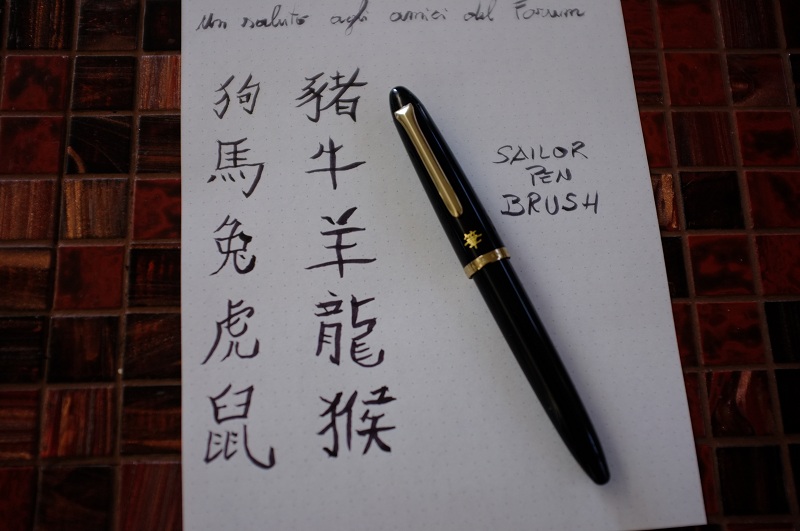 Un saluto agli amici del Forum
狗 豬
馬 牛
兔 羊
虎 龍
鼠 猴
SAILOR
PEN
BRUSH